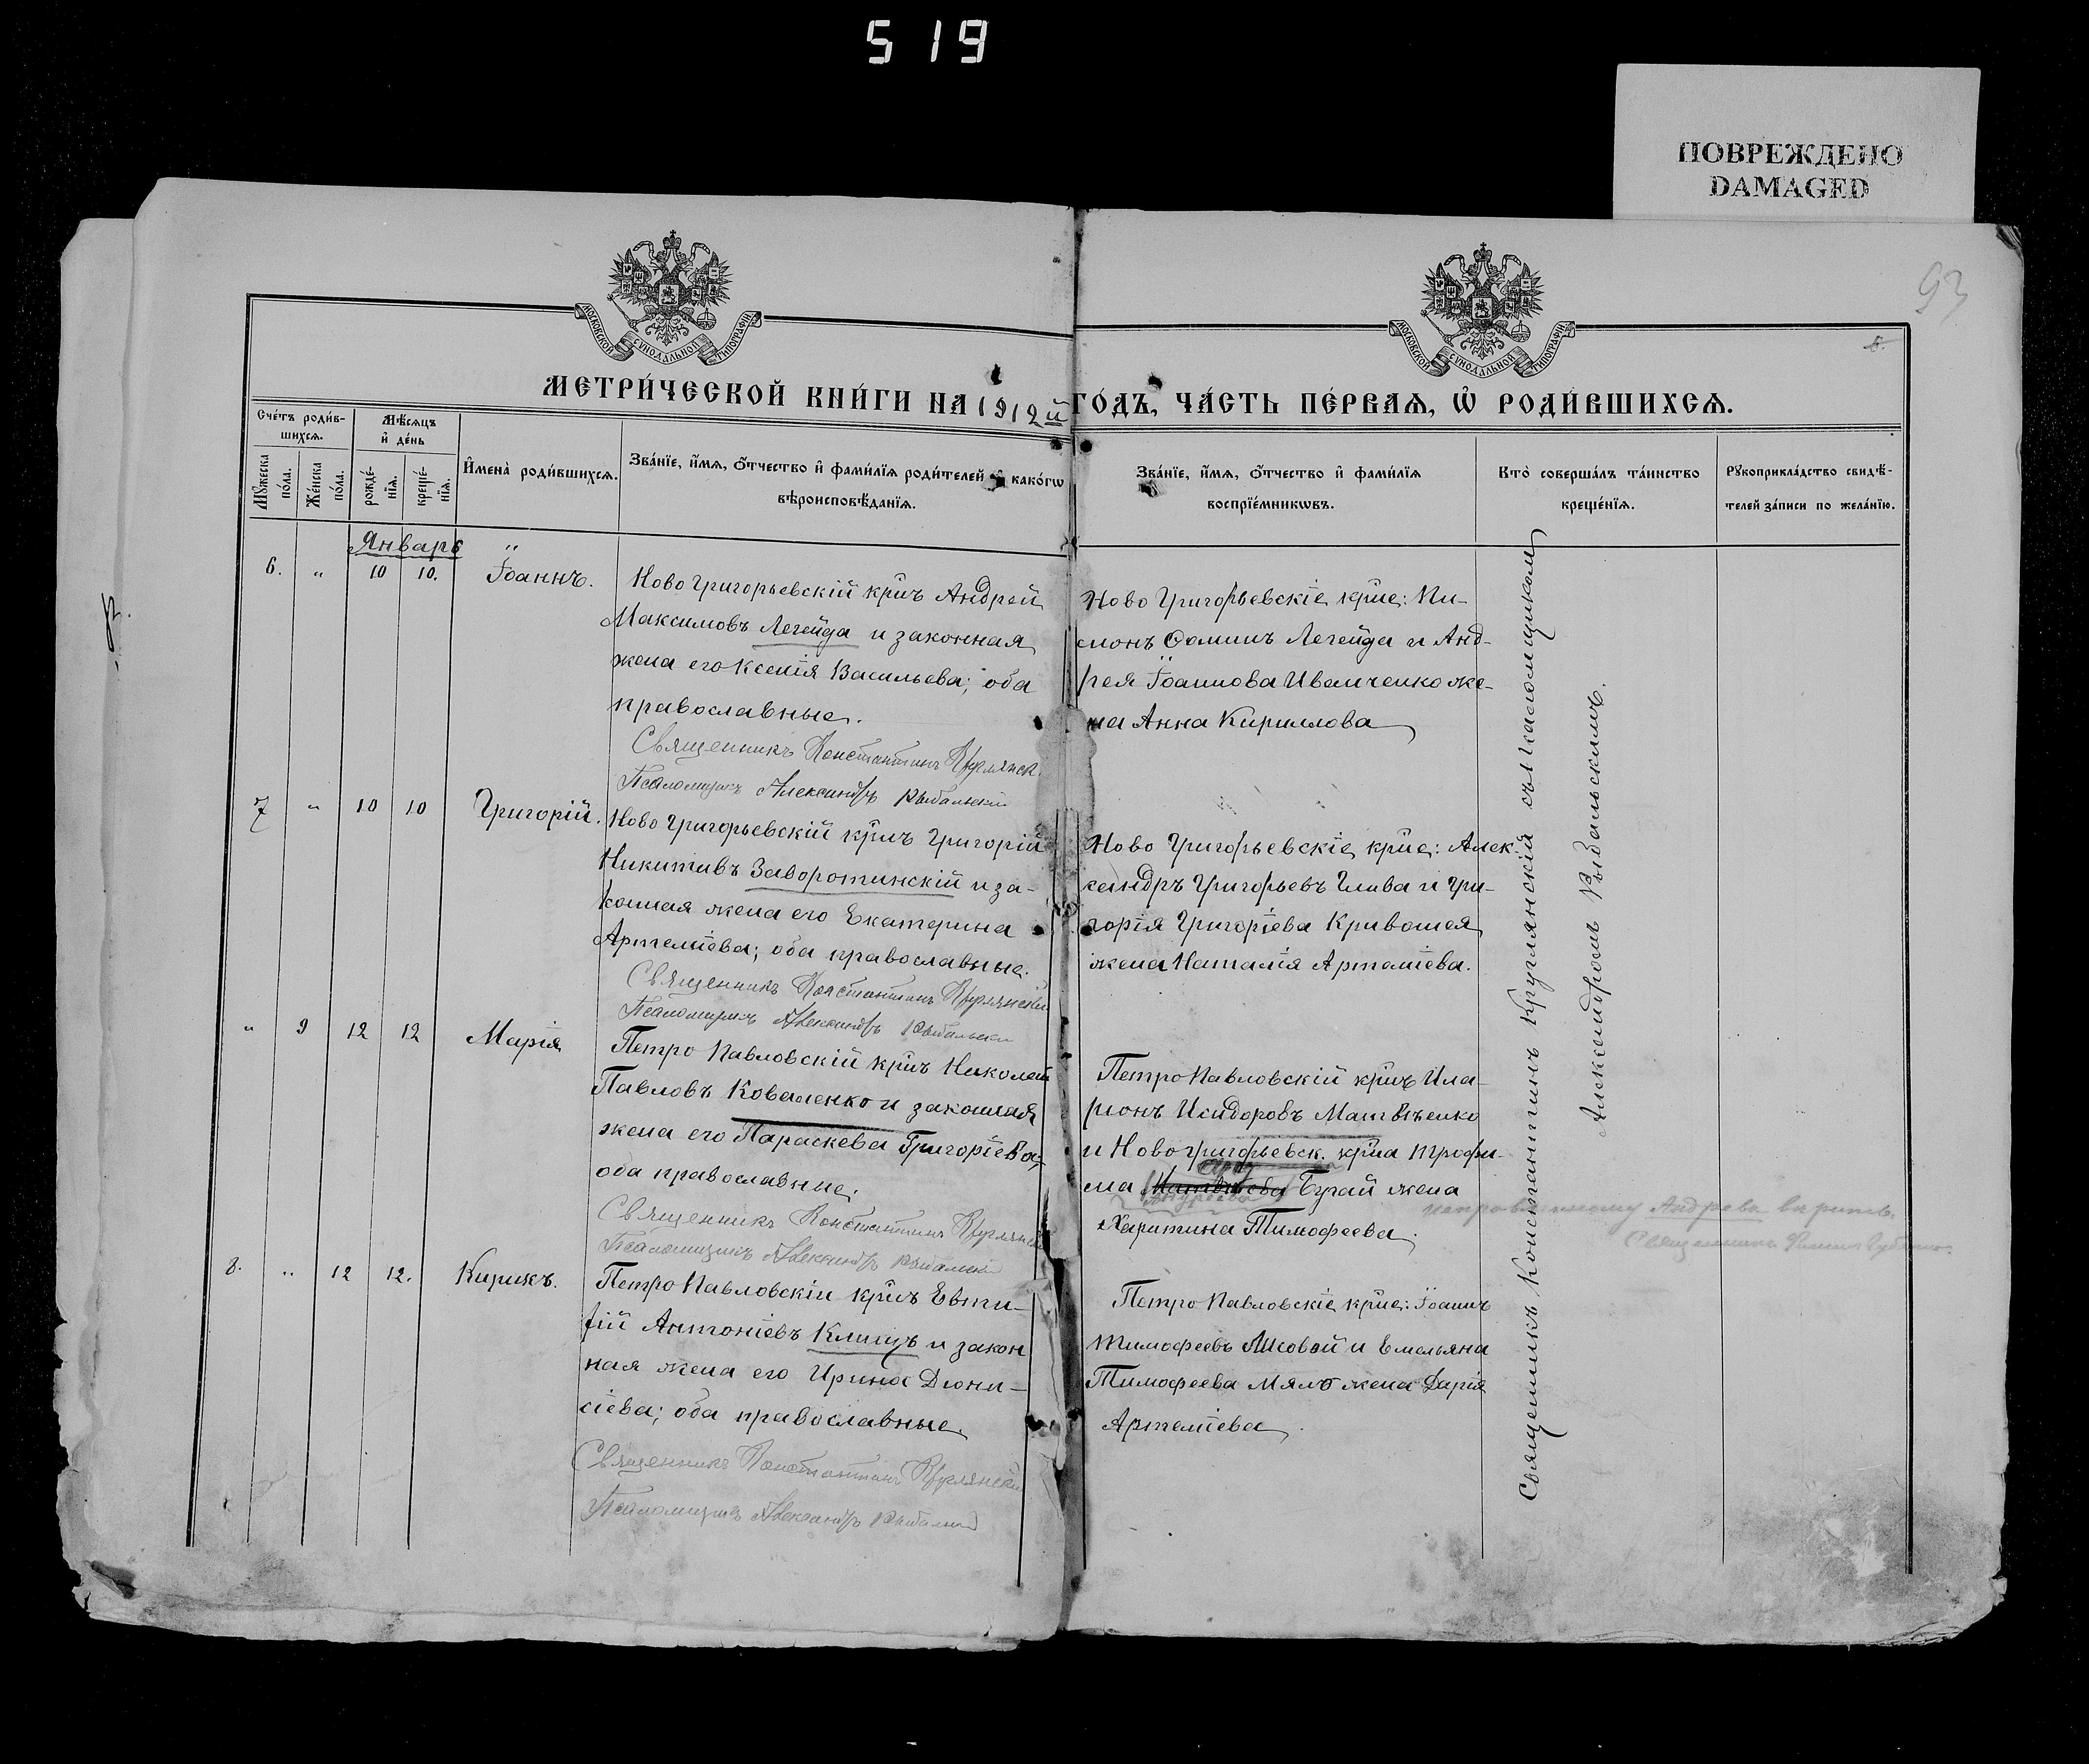 519
ПОВРЕЖДЕНО
DAMAGED
93
МОСКОВСКОЙ СУНОДАЛЬНОЙ ТИПОГРАФІИ
МОСКОВСКОЙ СУНОДАЛЬНОЙ ТИПОГРАФІИ
МЕТРИ́ЧЕСКОЙ КНИ́ГИ НА 1912й ГО́ДЪ, ЧА́СТЬ ПЕ́РВАѦ, Ѡ РОДИ́ВШИХСѦ.
Счетъ роди́в-
шихсѧ.
Мѣсѧцъ
и де́нь
Мꙋжеска
по́ла.
Же́нска
по́ла.
рожде́-
нїѧ.
креще́-
нїѧ.
Имена̀ роди́вшихсѧ.
Зва́нїе, и́мѧ, о́тчество и фами́лїѧ роди́телей и како́гѡ
вѣроисповѣ́данїѧ.
Зва́нїе, и́мѧ, о́тчество и фами́лїѧ
воспрїе́мникѡвъ.
Кто̀ соверша́лъ та́инство
креще́нїѧ.
Рꙋкоприкла́дство свидѣ́-
телей за́писи по жела́нїю.
Январь
6. „ 10 10. Іоаннъ.
Ново Григорьевскій кр̃нъ Андрей
Максимовъ Легейда и законная
жена его Ксенія Васильева; оба
православные.
Священникъ Константинъ Круглянск.
Псаломщикъ Александръ Выдальскій
Ново Григорьевскіе кр̃не: Пи-
монъ Фоминъ Легейда и Анд-
рея Іоаннова Иванченко же-
на Анна Кириллова
7 „ 10 10 Григорій.
Ново Григорьевскій кр̃нъ Григорій
Никитивъ Заворотинскій и за-
конная жена его Екатерина
Артеміева; оба православные.
Священникъ Константинъ Круглянскій
Псаломщикъ Александръ Выдальскій
Ново Григорьевскіе кр̃не: Алек-
сандръ Григорьевъ Глива и Гри-
горія Григоріева Кривошея
жена Наталія Артеміева.
„ 9 12 12 Марія
Петро Павловскій кр̃нъ Николай
Павловъ Коваленко и законная
жена его Параскева Григоріева;
оба православные.
Священникъ Константинъ Круглянскій
Псаломщикъ Александръ Выдальскій
Петро Павловскій кр̃нъ Ила-
ріонъ Исидоровъ Матвѣенко
и Ново Григорьевск. кр̃на Трофи-
ма Матвѣева Бугай жена
Андреева
Харитина Тимофеева.
исправленному Андреева вѣрить.
Священникъ
8. „ 12 12. Кирикъ.
Петро Павловскій кр̃нъ Евти-
фій Антоніевъ Клищъ и закон
ная жена его Ирина Діони-
сіева; оба православные.
Священникъ Константинъ Круглянскій
Псаломщикъ Александръ Выдальскій
Петро Павловскіе кр̃не: Іоаннъ
Тимофеевъ Лисовой и Емельяна
Тимофеева Мяло жена Дарія
Артеміева.
Священникъ Константинъ Круглянскій съ псаломщикомъ
Александромъ Выдальскимъ.